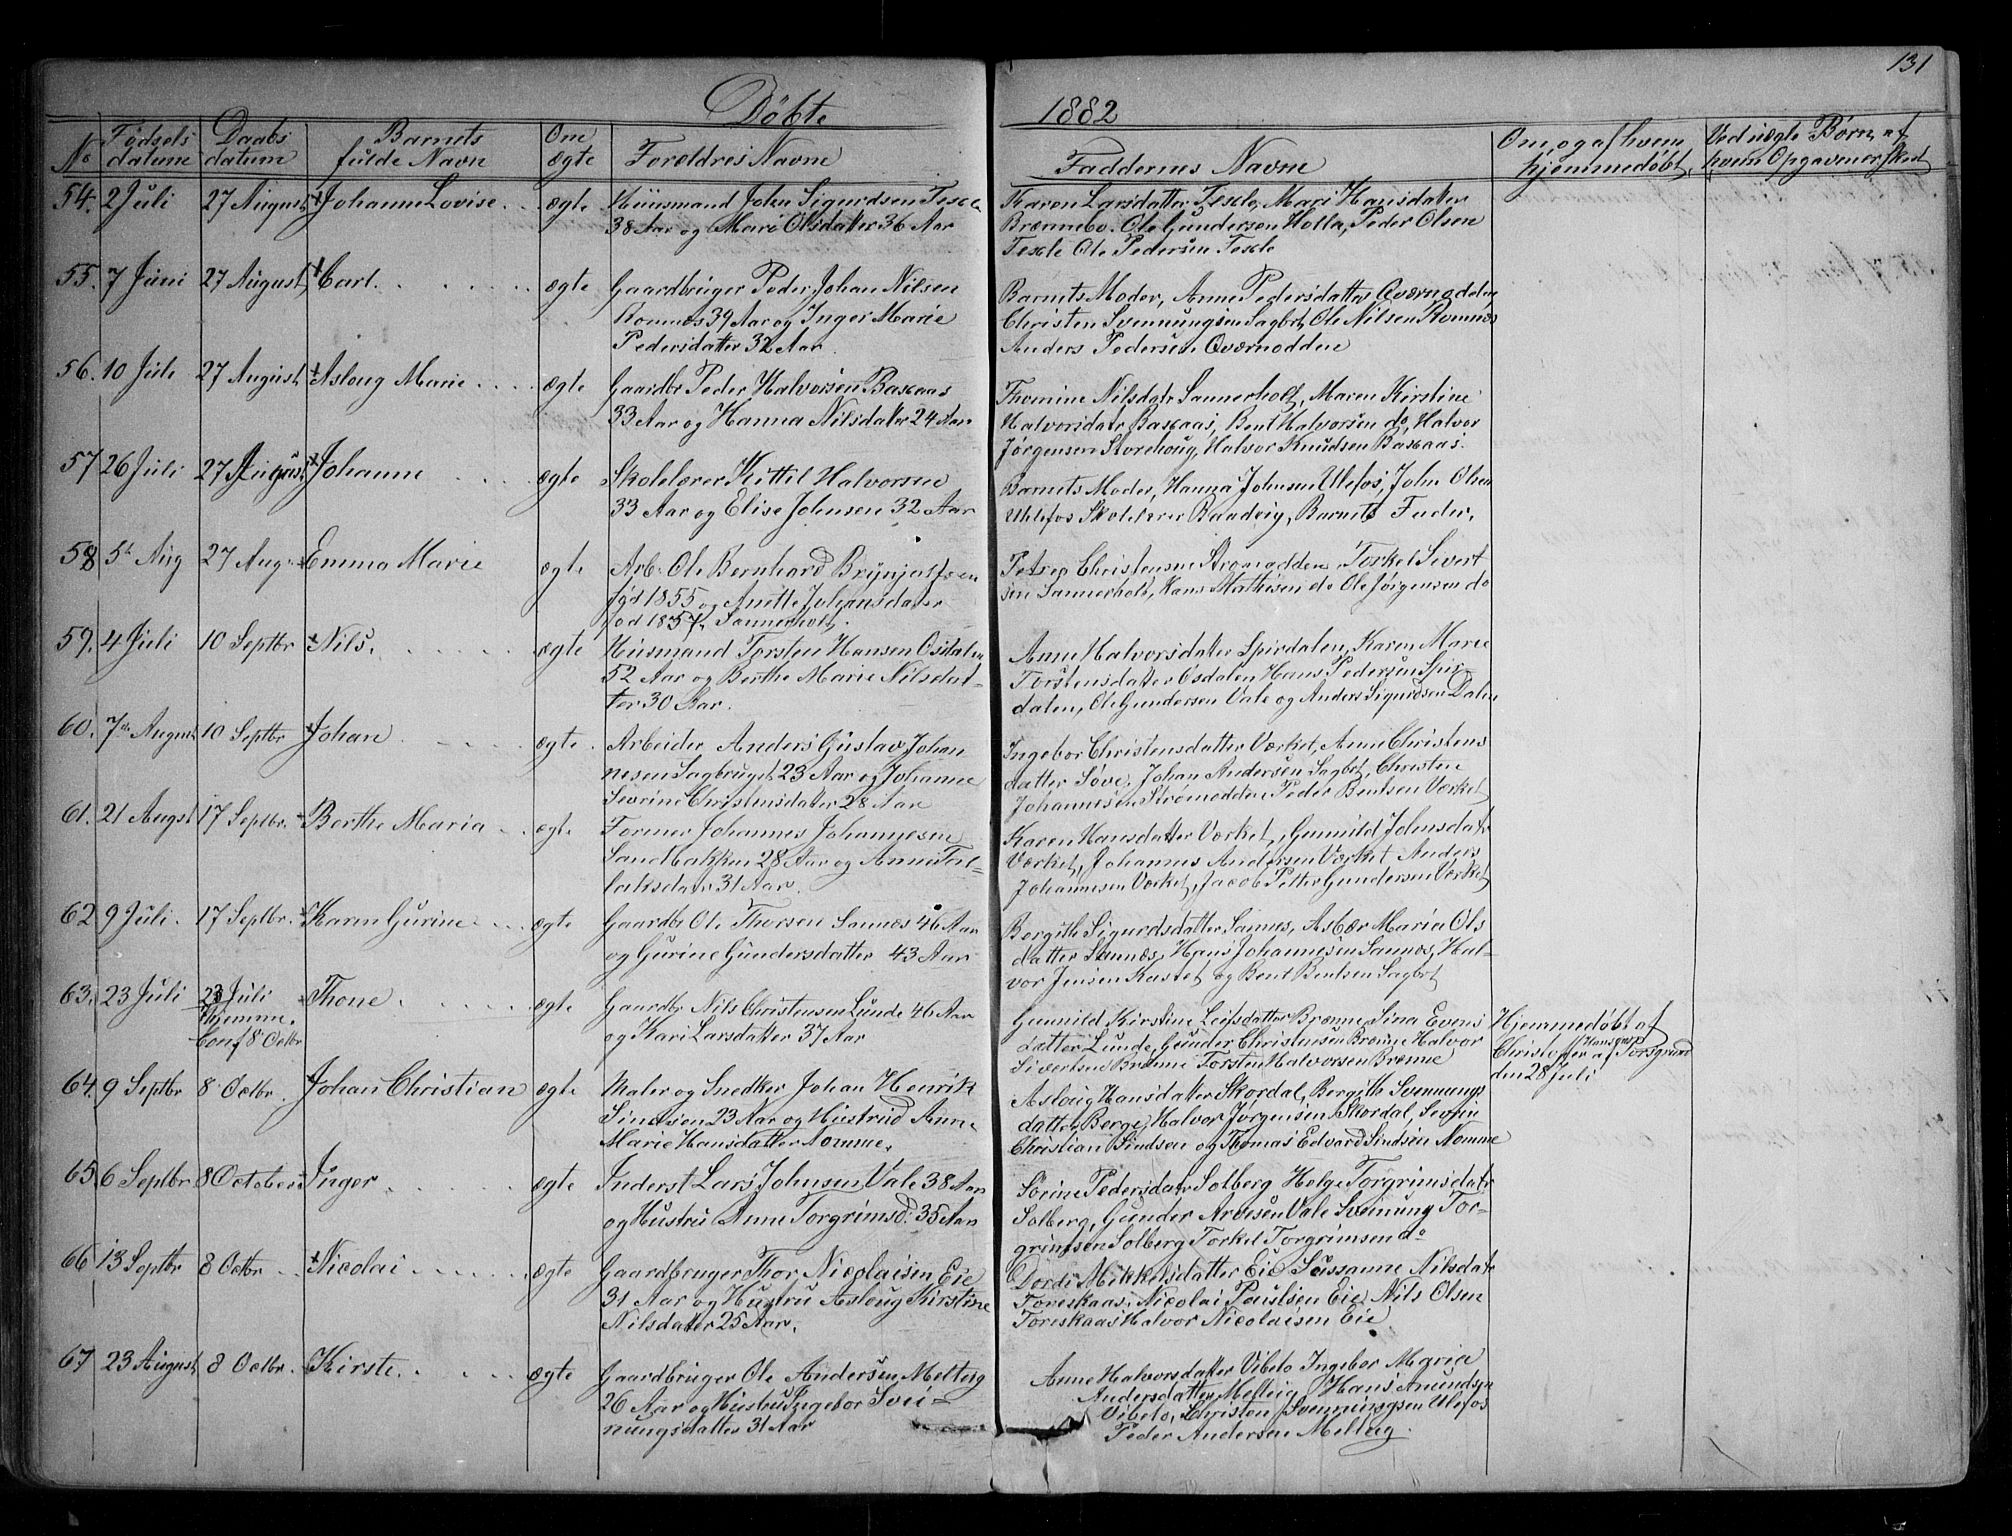 131
Døbte 1882
No Fødsels datum Daabs datum Barnets fulde Navn Om ægte Forældres Navne Faddernes Navne Om, og af hvem hjemmedøbt, Ved uægte Børn, af hvem Opgaven er skeet
54. 2 Juli 27 August Johanne Lovise ægte Huusmand John Sigurdsen
38 Aar og Mari Olsdatter 36 Aar
Karen Larsdatter Mari Hansdatter
Brænnebo. Ole Gundersen Holla, Peder Olsen
Ole Pedersen
55. 7 Juni 27 August Carl ægte Gaardbruger Peder Johan Nilsen
Romnæs 39 Aar og Inger Marie
Pedersdatter 32 Aar
Barnets Moder, Anne Pedersdatter Qværnodden
Christen Svennungsen Sagbrt, Ole Nilsen Romnæs
Anders Pedersen Qværnodden
56. 10 Juli 27 August Aslaug Marie ægte Gaardbr Peder Halvorsen Baskaas
33 Aar og Hanna Nilsdatter 24 Aar
Thomine Nilsdatr Sannerholt, Maren Kirstine
Halvorsdatr Baskaas, Bent Halvorsen do, Halvor
Jørgensen Storehoug, Halvor Knudsen Baskaas.
57 26 Juli 27 August Johanne ægte Skolelærer Kittil Halvorsen
33 Aar og Elise Johnsen 32 Aar
Barnets Moder, Hanna Johnsen Ulefos, John Olsen
Uhlefos Skolelærer Baadvig, Barnets Fader,
58 5t Aug 27 Aug Emma Marie ægte Arb. Ole Bernhard Brynjulfsen
fød 1855 og Anette Johansdater
fød 1857, Sannerholt.
Christensen Strømodden, Torkel Sivert
sen Sannerholt, Hans Mathisen do Ole Jørgensen do
59. 4 Juli 10 Septbr Nils. ægte Huusmand Torsten Hansen Osdalen
52 Aar og Berthe Marie Nilsdat-
ter 30 Aar.
Anne Halvorsdatter Spirdalen, Karen Marie
Torstensdatter Osdalen Hans Pedersen Spir
dalen, Ole Gundersen Vale og Anders Sigurdsen Dalen
60. 7de August 10 Septbr Johan ægte Arbeider Anders Gustav Johan
nesen Sagbruget 23 Aar og Johanne
Severine Christensdatter 28 Aar
Ingebor Christensdatter Værket, Anne Christens
datter Søve, Johan Andersen Sagbrt, Christen
Johannesen Strømodden Peder Bentsen Værket
61. 21 Augst 17 Septbr. Berthe Maria ægte Former Johannes Johannesen
Sandbakken 28 Aar og Anne Tol-
laksdatr 31 Aar.
Karen Hansdatter Værket, Gunnild Johnsdatr
Værket, Johannes Andersen Værket Anders
Johannesen Værket, Jacob Petter Gundersen Værket
62 9 Juli. 17 Septbr. Karen Gurine ægte Gaardbr Ole Thorsen Sannes 46 Aar
og Gurine Gundersdatter 43 Aar
Bergith Sigurdsdatter Sannes, Asbær Maria Ols
datter Sannes, Hans Johannesen Sannes, Hal-
vor Jensen Kastet og Bent Bentsen Sagbrt
63. 23 Juli 23 Juli
Hjemme.
Conf 8 Octbr
Thone ægte Gaardbr Nils Christensen Lunde 46 Aar
og Kari Larsdatter 37 Aar
Gunnild Kirstine Leifsdatter Brænne, Sina Evens
datter Lunde, Gunder Christensen Brenne Halvor
Sivertsen Brænne Torsten Halvorsen Brænne
Hjemmedøbt af
Christoffer Hansen af Porsgrund
den 28 Juli
64. 9 Septbr 8 Octbr. Johan Christian ægte Maler og Snedker Johan Henrik
Sindsen 23 Aar og Hustrue Anne
Marie Hansdatter Nomme.
Aslaug Hansdatter Skordal, Bergith Svennungs
datter Berge, Halvor Jørgensen Skordal, Severin
Christian Sindsen og Thomas Edvard Sindsen Nomme
65. 6 Septbr 8 October Inger ægte Inderst Lars Johnsen Vale 38 Aar
og Hustru Anne Torgrimsd. 35 Aar
Sørine Pedersdatr Solberg Helge Torgrimsdatr
Solberg, Gunder Arvesen Vale Svennung Tor-
grimsen Solberg Torkel Torgrimsen do
66 13 Septbr 8 Octbr Nicolai ægte Gaardbruger Thor Nicolaisen Eie
31 Aar og Hustru Aslaug Kirstine
Nilsdatter 25 Aar.
Dordi Mikkelsdatter Eie Sussanne Nilsdatr
Toreskaas, Nicolai Paulsen Eie, Nils Olsen
Toreskaas Halvor Nicolaisen Eie
67 23 August 8 Octbr. Kirste. ægte Gaardbruger Ole Andersen Melteig
26 Aar og Hustru Ingebor Svei-
nungsdatter 31 Aar
Anne Halvorsdatter Vibeto Ingebor Maria
Andersdatter Melteig, Hans Amundsen
Vibeto, Christen Svenningsen Ulefos
Peder Andersen Melteig.